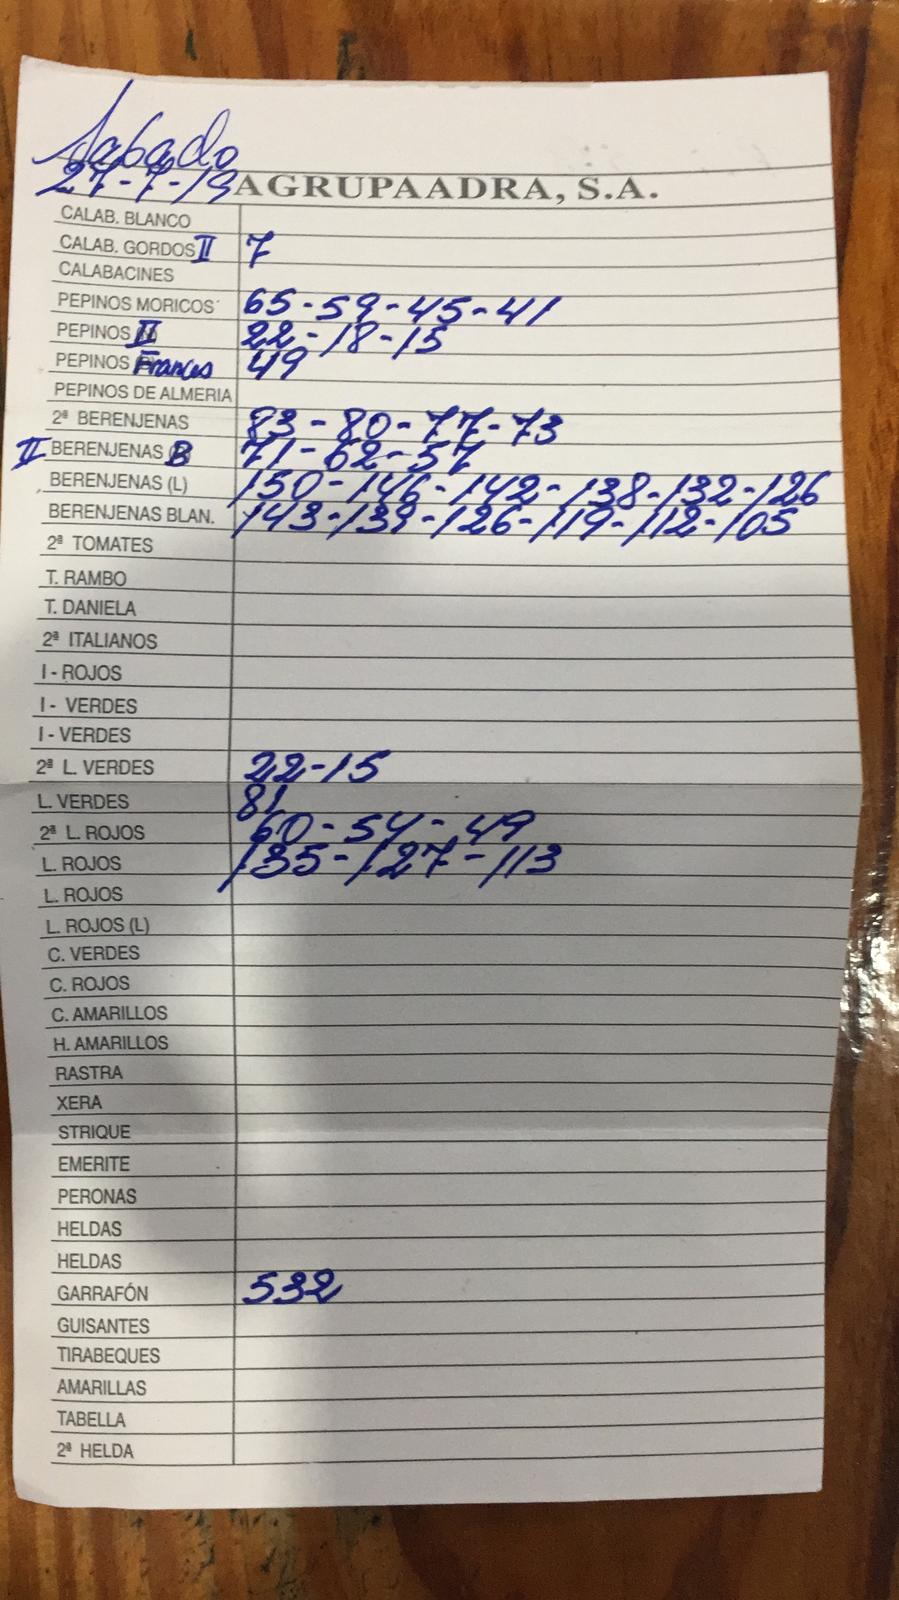 Sabado
27-7-19 AGRUPAADRA, S.A.
CALAB. BLANCO
CALAB. GORDOS II 7
CALABACINES
PEPINOS MORICOS 65-59-45-41
PEPINOS II 22-18-15
PEPINOS Frances 49
PEPINOS DE ALMERIA
2ª BERENJENAS 83-80-77-73
II BERENJENAS B 71-62-57
BERENJENAS (L) 150-146-142-138-132-126
BERENJENAS BLAN. 143-139-126-119-112-105
2ª TOMATES
T. RAMBO
T. DANIELA
2ª ITALIANOS
I - ROJOS
I - VERDES
I - VERDES
2ª L. VERDES 22-15
L. VERDES 81
2ª L. ROJOS 60-54-49
L. ROJOS 135-127-113
L. ROJOS
L. ROJOS (L)
C. VERDES
C. ROJOS
C. AMARILLOS
H. AMARILLOS
RASTRA
XERA
STRIQUE
EMERITE
PERONAS
HELDAS
HELDAS
GARRAFÓN 532
GUISANTES
TIRABEQUES
AMARILLAS
TABELLA
2ª HELDA